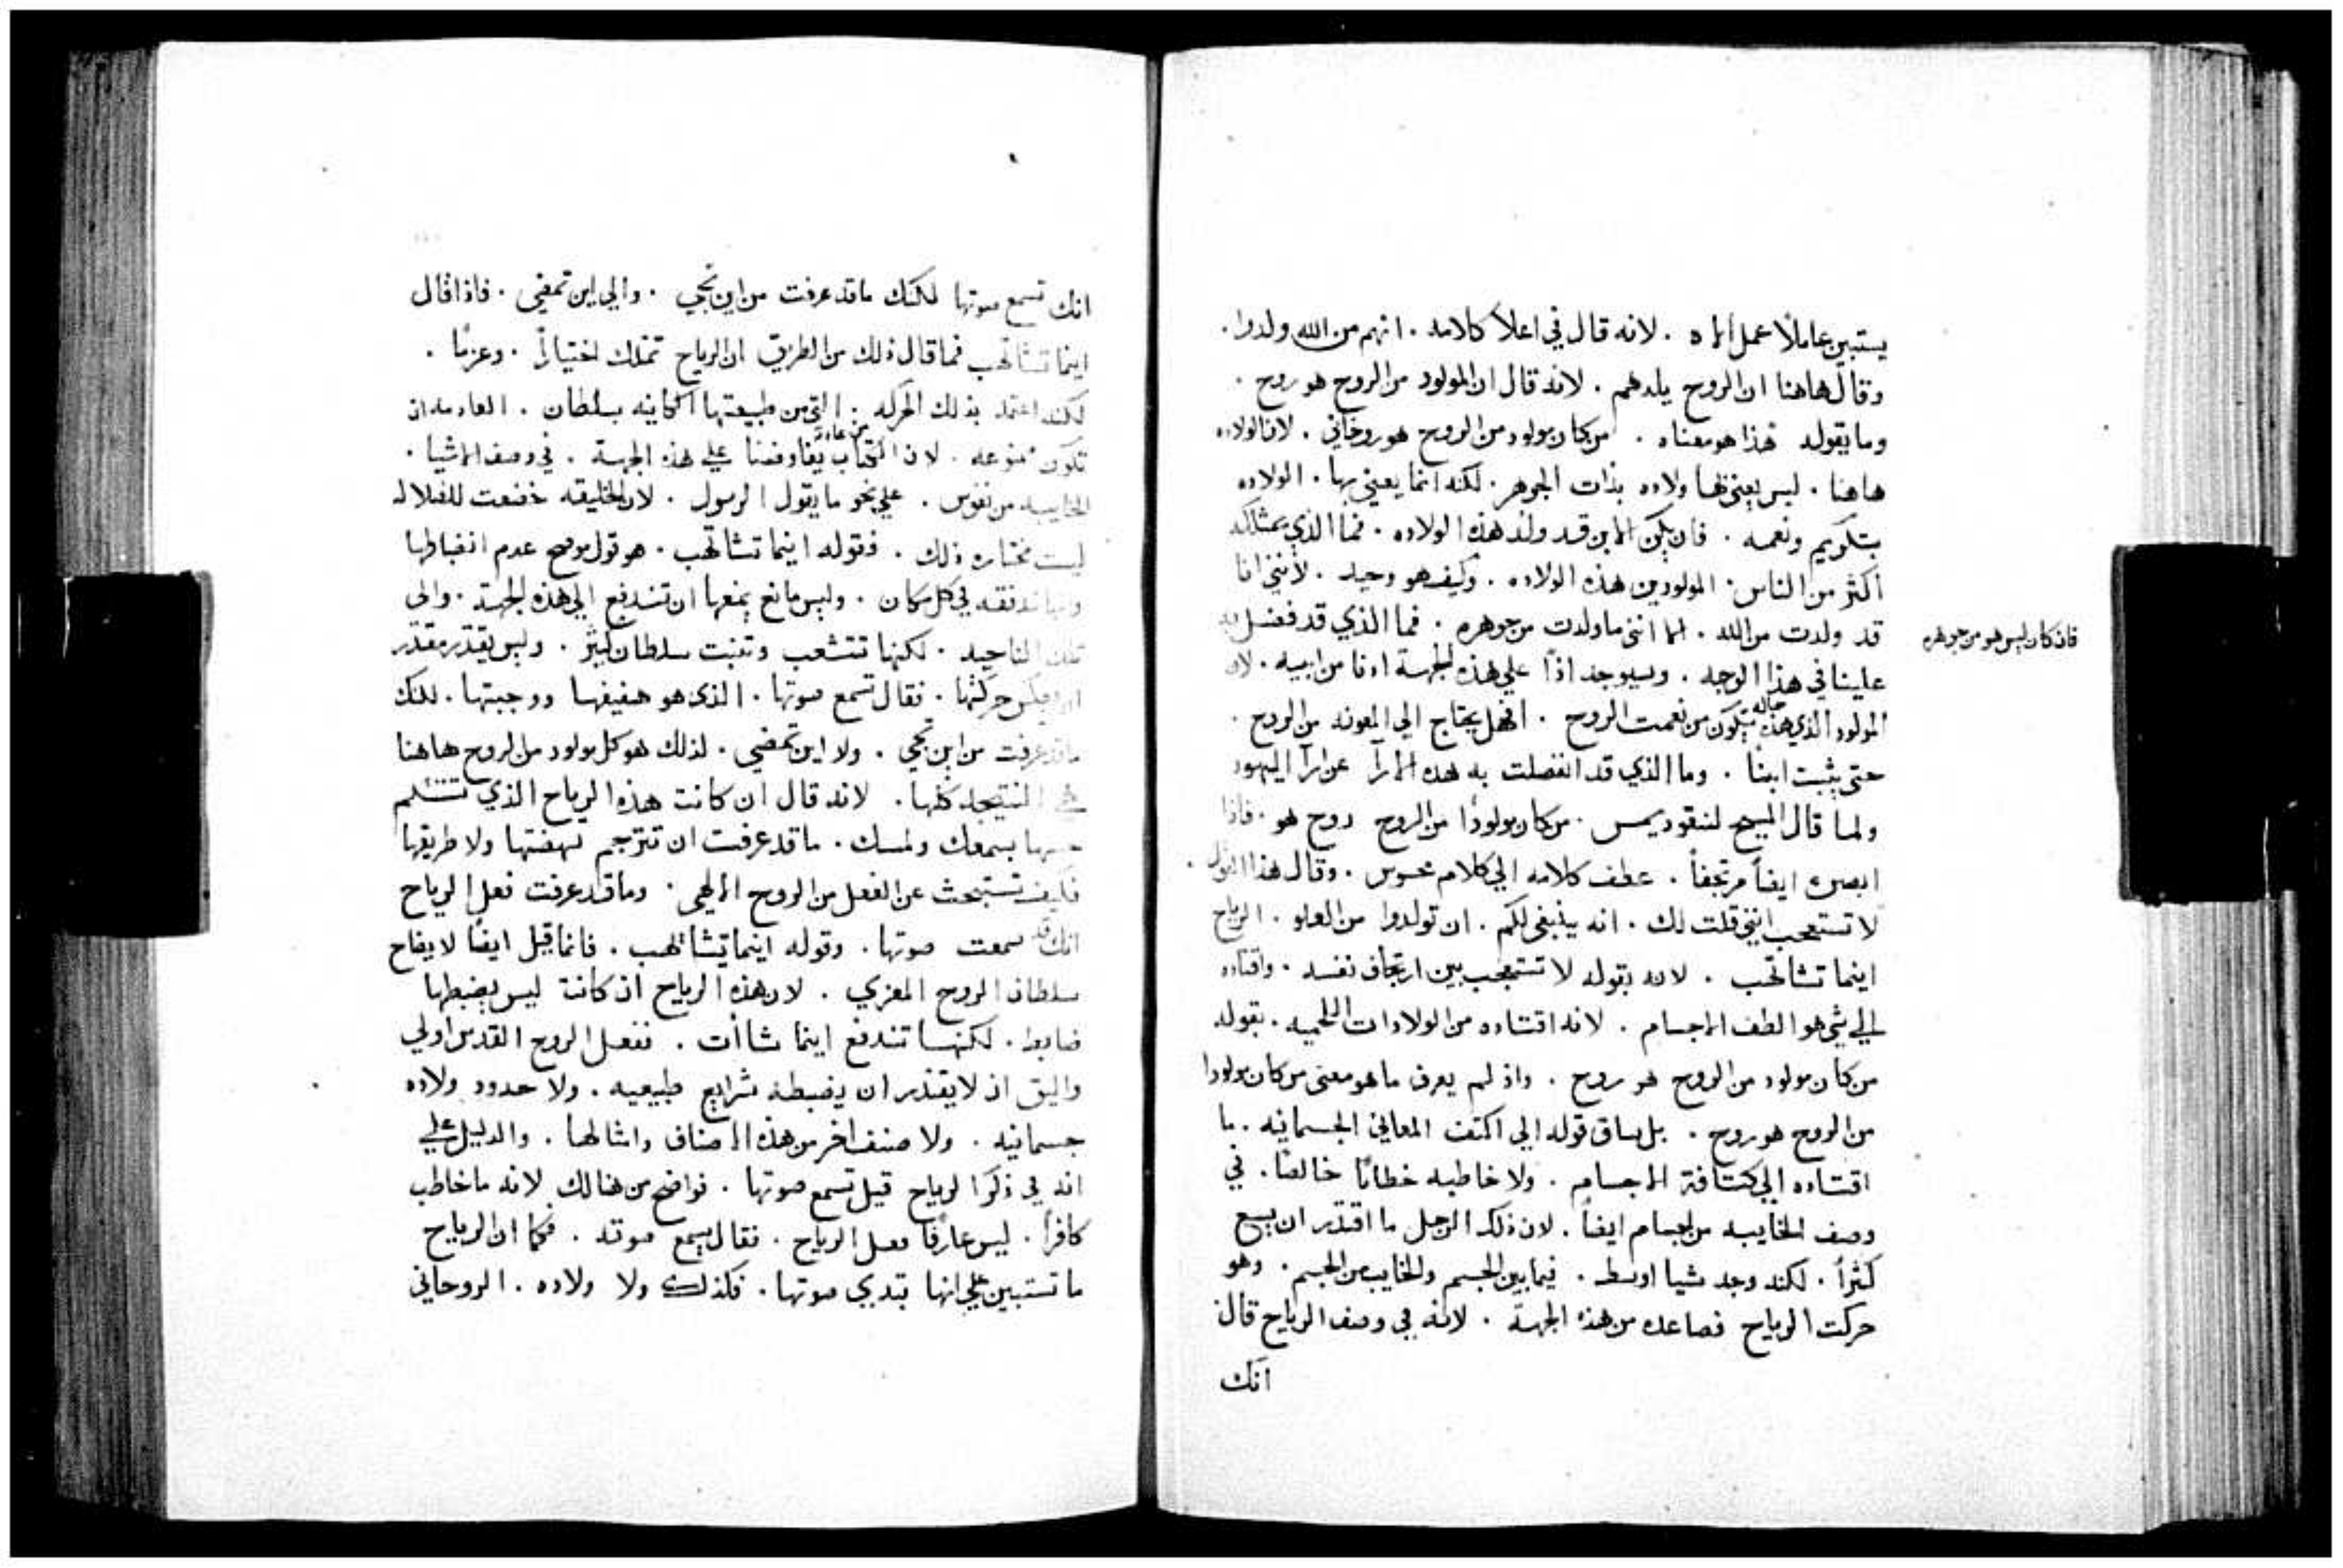 يستبين عاملًا عمل الاه . لانه قال في اعلا كلامه . انهم من الله ولدوا .
وقال هاهنا ان الروح يلدهم . لانه قال ان المولود من الروح هو روح .
وما يقوله هذا هو معناه . من كان مولود من الروح هو روحاني . لان الولاده
هاهنا . ليس يعني بها ولاده بذات الجوهر . لكنه انما يعني بها . الولاده
بتكريم ونعمه . فان يكن الابن قد ولد هذه الولاده . فما الذي يمتلكه
اكثر من الناس . المولودين هذه الولاده . وكيف هو وحيد . لانني انا
قد ولدت من الله . الا انني ما ولدت من جوهره . فما الذي قد فضل به
فان كان ليس هو من جوهره
علينا في هذا الوجه . وسيوجد اذًا علي هذه الجهة ادنا من ابيه . لان
المولود الذي هذه حاله يتكون من نعمت الروح . افهل يحتاج الي المعونه من الروح .
حتي يثبت ابنًا . وما الذي قد انفصلت به هذه الارآ عن ارآ اليهود
ولما قال المسيح لنيقوديمس . من كان مولودًا من الروح روح هو . فاذا
ابصره ايضاً مرتجفاً . عطف كلامه الي كلام محسوس . وقال هذا القول .
لا تستعجب انني قلت لك . انه ينبغي لكم . ان تولدوا من العلو . الرياح
اينما تشا تهب . لانه بقوله لا تستعجب بين ارتجاف نفسه . واقتاده
الي شي هو الطف الاجسام . لانه اقتاده من الولادات اللحميه . بقوله
من كان مولود من الروح هو روح . واذ لم يعرف ما هو معني من كان مولودا
من الروح هو روح . بل ساق قوله الي اكثف المعاني الجسمانيه . ما
اقتاده الي كثافة الاجسام . ولا خاطبه خطابًا خالصًا . في
وصف الخايبه من اجسام ايضاً . لان ذلك الرجل ما اقتدر ان يسمع
كثراً . لكنه وجد شيا اوسط . فيما بين الجسم والخايب من الجسم . وهو
حركت الرياح فصاعده من هذه الجهة . لانه في وصف الرياح قال
انك
انك تسمع صوتها لكنك ما قد عرفت من اين تجي . والي اين تمضي . فاذا قال
اينما تشا تهب فما قال ذلك من الطريق ان الرياح تمتلك اختياراً . وعزمًا .
لكنه اعتمد بذلك الحركه . التي من طبيعتها الكاينه بسلطان . العادمه ان
تكون ممنوعه . لان الكتاب من عادته يفاوضنا علي هذه الجهة . في وصف الاشيا .
الخايبه من نفوس . علي نحو ما يقول الرسول . لان الخليقه خضعت للضلاله
ليست مختاره ذلك . فقوله اينما تشا تهب . هو قول موضح عدم انضباطها
في كل مكان . وليس مانع يمنعها ان تندفع الي هذه الجهة . والي
تلك الناحيه . لكنها تتشعب وتنبت بسلطان كثير . وليس يقتدر مقتدر
ان يعكس حركتها . فقال تسمع صوتها . الذي هو هفيفها ووجبتها . لكنك
ما قد عرفت من اين تجي . ولا اين تمضي . لذلك هو كل مولود من الروح هاهنا
هي النتيجه كلها . لانه قال ان كانت هذه الرياح الذي تتسلم
حسها بسمعك ولمسك . ما قد عرفت ان تترجم نهضتها ولا طريقها
فكيف تستبحث عن الفعل من الروح الالهي . وما قد عرفت فعل الرياح
انك قد سمعت صوتها . وقوله اينما تشا تهب . فانما قيل ايضًا لايضاح
سلطان الروح المعزي . لان هذه الرياح ان كانت ليس يضبطها
ضابط . لكنها تندفع اينما شاأت . ففعل الروح القدس اولي
واليق ان لا يقتدر ان يضبطه شرايع طبيعيه . ولا حدود ولاده
جسمانيه . ولا صنف اخر من هذه الاصناف وامثالها . والدليل علي
انه في ذكر الرياح قيل تسمع صوتها . فواضح من هنالك لانه ما خاطب
كافراً . ليس عارفًا فعل الرياح . فقال يسمع صوته . فكما ان الرياح
ما تستبين علي انها تبدي صوتها . فكذلك ولا ولاده . الروحاني